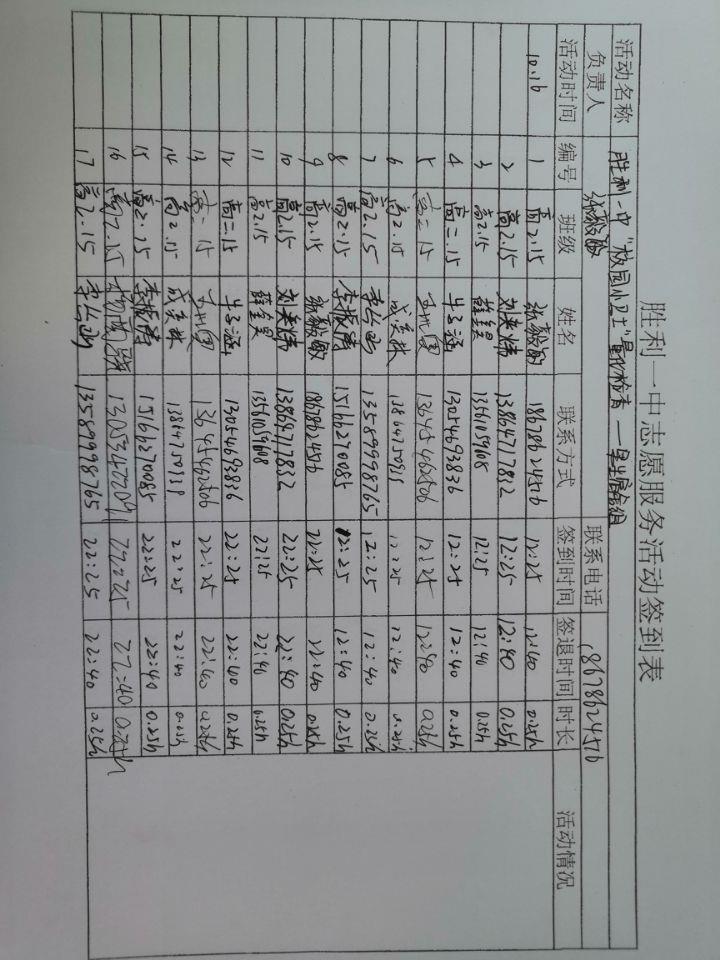 胜利一中志愿服务活动签到表
活动名称 胜利一中"校园小卫士"量化检查
负责人 张毅 联系电话 18678624516
活动时间 编号 班级 姓名 联系方式 签到时间 签退时间 时长 活动情况
10.16 1 高2.15 张毅 18678624516 12:25 12:40 0.25h
2 高2.15 13864717832 12:25 12:40 0.25h
3 高2.15 薛 13561059608 12:25 12:40 0.25h
4 高二.15 牛子涵 13054693836 12:25 12:40 0.25h
5 高二.15 13645462506 12:25 12:40 0.25h
6 高2.15 12:25 12:40 0.25h
7 高2.15 李 13589998765 12:25 12:40 0.25h
8 高2.15 李振 15166270085 12:25 12:40 0.25h
9 高2.15 张毅 18678624516 22:25 22:40 0.25h
10 高2.15 13864717832 22:25 22:40 0.25h
11 高2.15 薛 13561059608 22:25 22:40 0.25h
12 高二.15 牛子涵 13054693836 22:25 22:40 0.25h
13 高二.15 13645462506 22:25 22:40 0.25h
14 高2.15 22:25 22:40 0.25h
15 高2.15 李振 15166270085 22:25 22:40 0.25h
16 高2.15 22:25 22:40 0.25h
17 高2.15 李 13589998765 22:25 22:40 0.25h